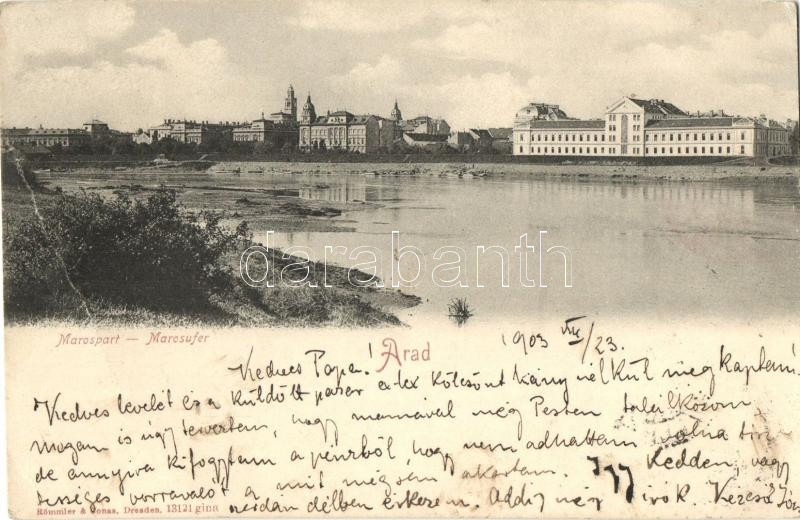 darabanth
Marospart — Marosufer
Arad
1903 VII/23.
Kedves Papa!
Kedves levelét és a küldött kölcsönt hiány nélkül megkaptam.
Magam is úgy terveztem, hogy mamával még Pesten találkozom
de annyira kifogytam a pénzből, hogy nem adhattam volna
a mit mégsem akartam. Így Kedden, vagy
szerdán délben érkezem. Addig még írok.
Römmler & Jonas, Dresden, 13121 gina